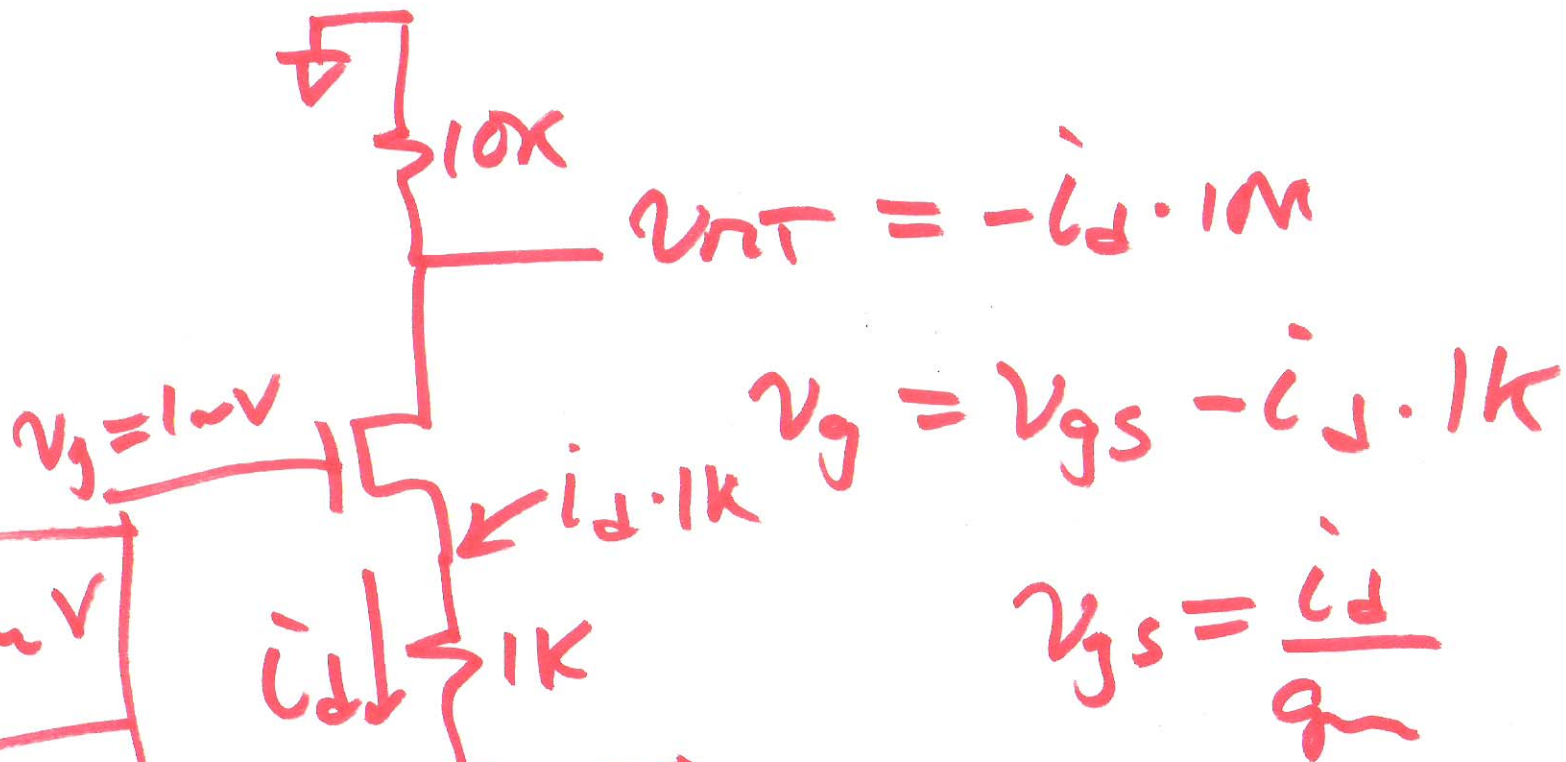 10K
vout = -id · 1M
vg = 1mV
vg = vgs - id · 1K
id · 1K
V
id
1K
vgs = id / gm